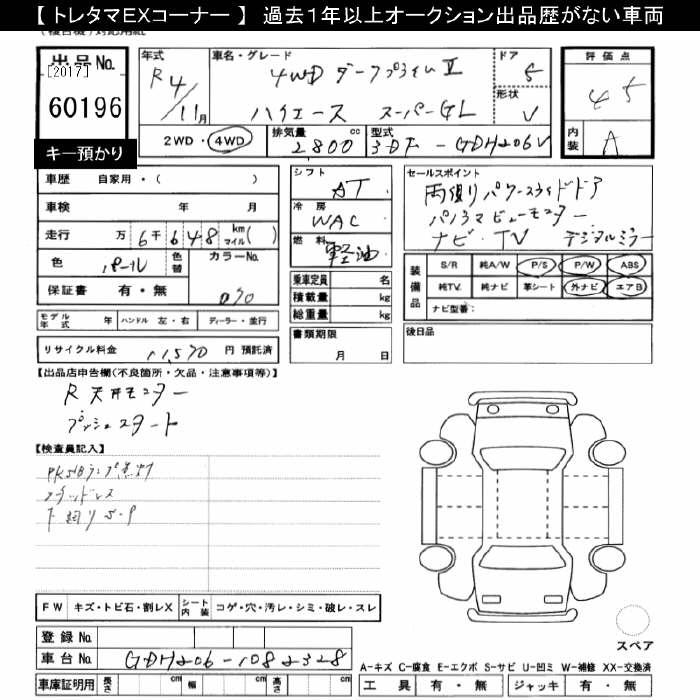 【 トレタマEXコーナー 】 過去1年以上オークション出品歴がない車両
出品No.
[2017]
60196
キー預かり
年式
R4/11月
車名・グレード
4WD ダークプライムⅡ
ハイエース スーパーGL
ドア
5
形状
V
評価点
4.5
内装
A
2WD・4WD
排気量
2800 cc
型式
3DF-GDH206V
車歴 自家用・( )
車検 年 月
走行 万 6千648 km マイル( )
色 パール 色替
カラーNo. 070
保証書 有・無
モデル年式 年 ハンドル 左・右 ディーラー・並行
リサイクル料金 11,570 円 預託済
シフト
AT
冷房
WAC
燃料
軽油
乗車定員 名
積載量 kg
総重量 kg
書類期限
月 日
セールスポイント
両側パワースライドドア
パノラマビューモニター
ナビ・TV デジタルミラー
装備品
S/R 純A/W P/S P/W ABS
純TV 純ナビ 革シート 外ナビ エアB
ナビ型番:
後日品
【出品店申告欄(不良箇所・欠品・注意事項等)】
R天井モニター
プッシュスタート
【検査員記入】
スタッドレス
下廻りS・P
FW キズ・トビ石・割レX シート内装 コゲ・穴・汚レ・シミ・破レ・スレ
登録No.
車台No. GDH206-1082328
車庫証明用 長さ cm 幅 cm 高さ cm
スペア
A-キズ C-腐食 E-エクボ S-サビ U-凹ミ W-補修 XX-交換済
工具 有・無 ジャッキ 有・無